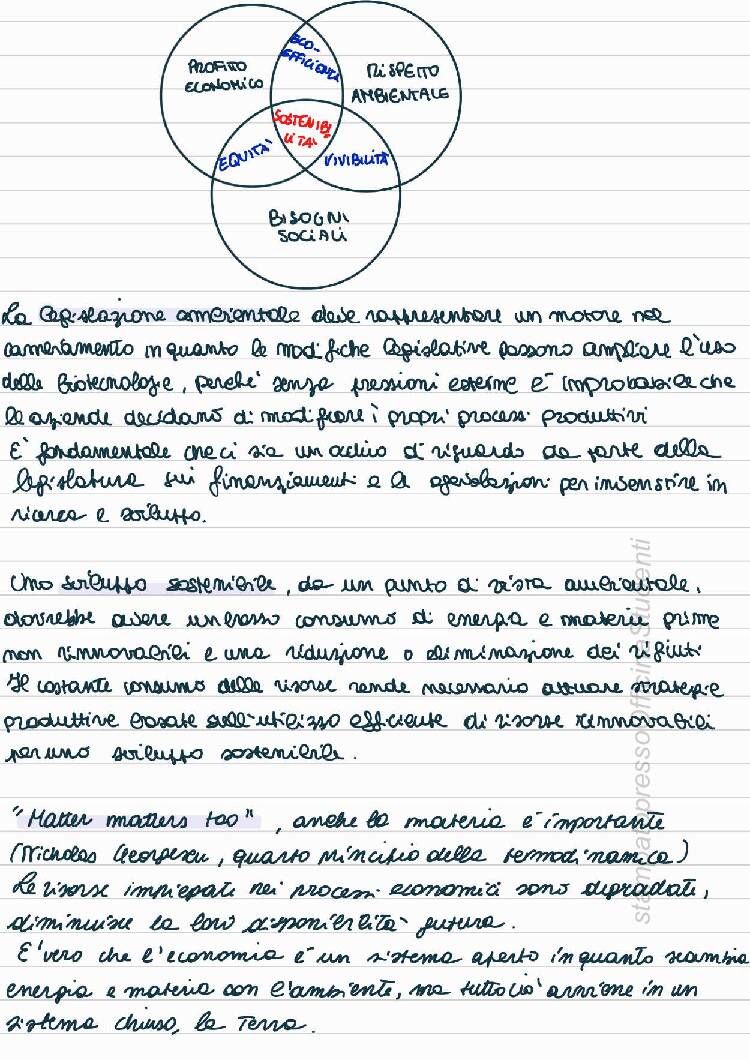 PROFITO
ECONOMICO
ECO-
EFFICIENZA
RISPETTO
AMBIENTALE
SOSTENIBI
LITA'
EQUITA'
VIVIBILITA'
BISOGNI
SOCIALI
La legislazione ambientale deve rappresentare un motore nel
cambiamento in quanto le modifiche legislative possono ampliare l'uso
delle biotecnologie, perche' senza pressioni esterne e' improbabile che
le aziende decidano di modificare i propri processi produttivi
E' fondamentale che ci sia un occhio di riguardo da parte della
legislatura sui finanziamenti e le agevolazioni per investire in
ricerca e sviluppo.
Uno sviluppo sostenibile, da un punto di vista ambientale,
dovrebbe avere un basso consumo di energia e materie prime
non rinnovabili e una riduzione o eliminazione dei rifiuti
Il costante consumo delle risorse rende necessario attuare strategie
produttive basate sull'utilizzo efficiente di risorse rinnovabili
per uno sviluppo sostenibile.
"Matter matters too", anche la materia e' importante
(Nicholas Georgescu, quarto principio della termodinamica)
Le risorse impiegate nei processi economici sono degradate,
diminuisce la loro disponibilita' futura.
E' vero che l'economia e' un sistema aperto in quanto scambia
energia e materia con l'ambiente, ma tutto cio' avviene in un
sistema chiuso, la Terra.
stampato presso OfficinaStudenti